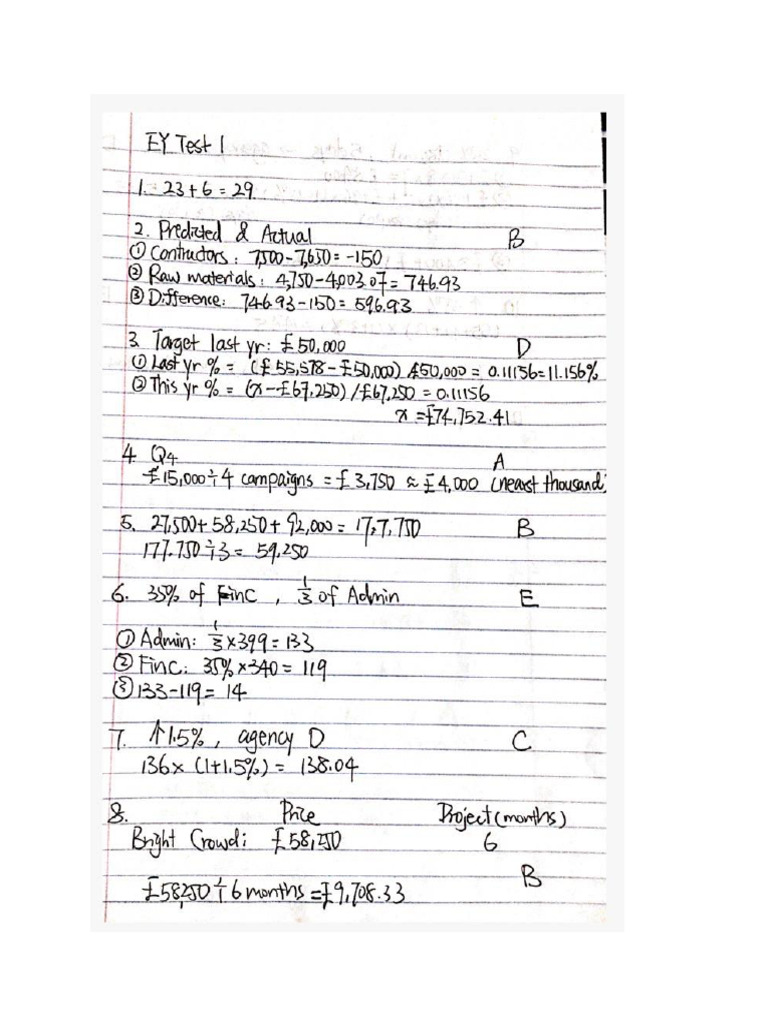 EY Test 1
1. 23+6=29.
2. Predicted & Actual B
① Contructors: 7,500-7,650=-150
② Raw materials: 4,750-4,003.07=746.93
③ Difference: 746.93-150=596.93
3. Target last yr: £50,000 D
① Last yr % = (£55,578-£50,000)/£50,000 = 0.11156=11.156%
② This yr % = (x-£67,250)/£67,250=0.11156
x=£74,752.41
4. Q4 A
£15,000÷4 campaigns = £3,750 ≈ £4,000 (nearst thousand)
5. 27,500+58,250+92,000=17,7,750 B
177.750÷3=59,250
6. 35% of Finc, 1/3 of Admin E
① Admin: 1/3×399=133
② Finc: 35%×340=119
③ 133-119=14
7. ↑1.5%, agency D C
136×(1+1.5%)=138.04
8. Price Project(months)
Bright Crowd: £58,250 6
B
£58,250÷6 months=£9,708.33